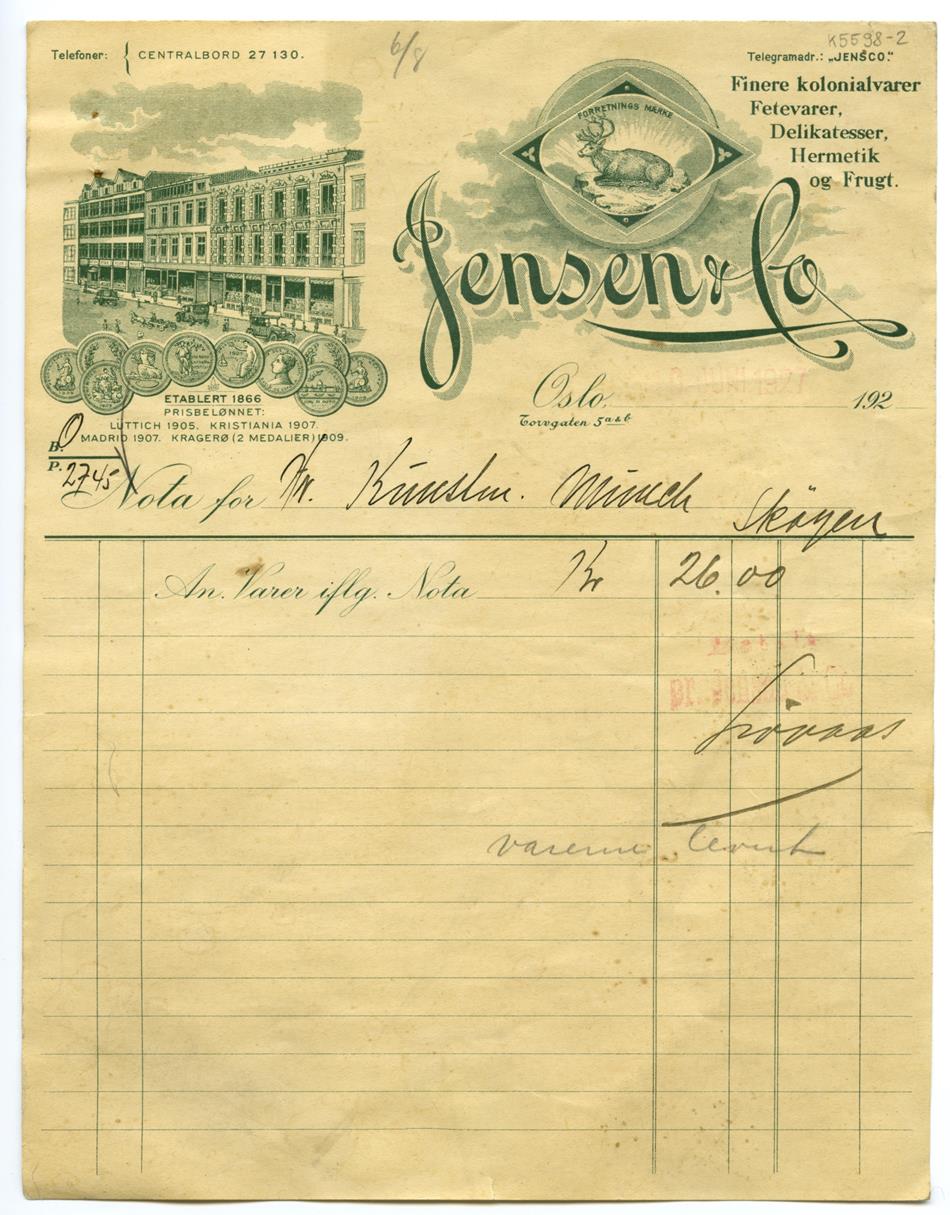 K5598-2
Telefoner: { CENTRALBORD 27 130.
6/8
Telegramadr.: „JENSCO.“
Finere kolonialvarer
Fetevarer,
Delikatesser,
Hermetik
og Frugt.
FORRETNINGS MÆRKE
Jensen & Co
ETABLERT 1866
PRISBELØNNET:
LÜTTICH 1905. KRISTIANIA 1907.
MADRID 1907. KRAGERØ (2 MEDALIER) 1909.
Oslo, 192
Torvgaten 5 a & b
B. 0
P. 2745
Nota for Hr. Kunstm. Munch
Skøyen
An. Varer iflg. Nota Kr 26.00
varerne levert